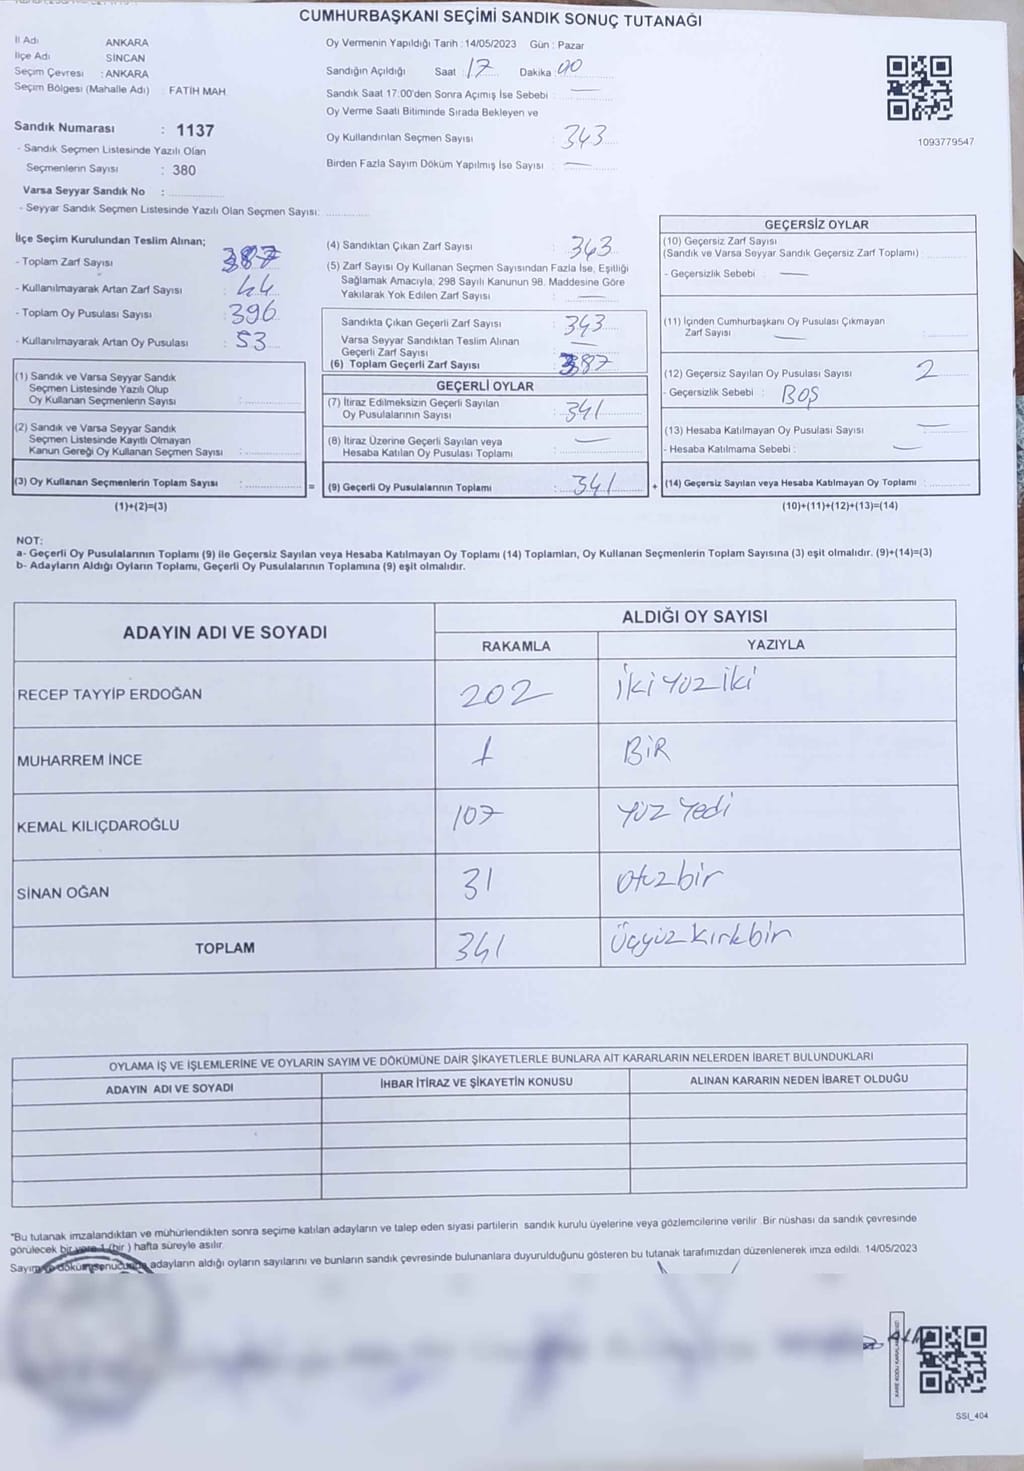 CUMHURBAŞKANI SEÇİMİ SANDIK SONUÇ TUTANAĞI
İl Adı ANKARA
İlçe Adı SİNCAN
Seçim Çevresi : ANKARA
Seçim Bölgesi (Mahalle Adı) FATİH MAH
Sandık Numarası : 1137
- Sandık Seçmen Listesinde Yazılı Olan
Seçmenlerin Sayısı : 380
Varsa Seyyar Sandık No :
- Seyyar Sandık Seçmen Listesinde Yazılı Olan Seçmen Sayısı:
Oy Vermenin Yapıldığı Tarih : 14/05/2023 Gün : Pazar
Sandığın Açıldığı Saat : 17 Dakika : 00
Sandık Saat 17:00'den Sonra Açımış İse Sebebi : —
Oy Verme Saati Bitiminde Sırada Bekleyen ve
Oy Kullandırılan Seçmen Sayısı : 343
Birden Fazla Sayım Döküm Yapılmış İse Sayısı : —
1093779547
İlçe Seçim Kurulundan Teslim Alınan;
- Toplam Zarf Sayısı : 387
- Kullanılmayarak Artan Zarf Sayısı : 44
- Toplam Oy Pusulası Sayısı : 396
- Kullanılmayarak Artan Oy Pusulası : 53
(1) Sandık ve Varsa Seyyar Sandık
Seçmen Listesinde Yazılı Olup
Oy Kullanan Seçmenlerin Sayısı :
(2) Sandık ve Varsa Seyyar Sandık
Seçmen Listesinde Kayıtlı Olmayan
Kanun Gereği Oy Kullanan Seçmen Sayısı :
(3) Oy Kullanan Seçmenlerin Toplam Sayısı : =
(1)+(2)=(3)
(4) Sandıktan Çıkan Zarf Sayısı : 343
(5) Zarf Sayısı Oy Kullanan Seçmen Sayısından Fazla İse, Eşitliği
Sağlamak Amacıyla, 298 Sayılı Kanunun 98. Maddesine Göre
Yakılarak Yok Edilen Zarf Sayısı : —
Sandıkta Çıkan Geçerli Zarf Sayısı : 343
Varsa Seyyar Sandıktan Teslim Alınan
Geçerli Zarf Sayısı : —
(6) Toplam Geçerli Zarf Sayısı : 387
GEÇERLİ OYLAR
(7) İtiraz Edilmeksizin Geçerli Sayılan
Oy Pusulalarının Sayısı : 341
(8) İtiraz Üzerine Geçerli Sayılan veya
Hesaba Katılan Oy Pusulası Toplamı : —
(9) Geçerli Oy Pusulalarının Toplamı : 341 +
GEÇERSİZ OYLAR
(10) Geçersiz Zarf Sayısı
(Sandık ve Varsa Seyyar Sandık Geçersiz Zarf Toplamı) :
- Geçersizlik Sebebi : —
(11) İçinden Cumhurbaşkanı Oy Pusulası Çıkmayan
Zarf Sayısı : —
(12) Geçersiz Sayılan Oy Pusulası Sayısı : 2
- Geçersizlik Sebebi : BOŞ
(13) Hesaba Katılmayan Oy Pusulası Sayısı : —
- Hesaba Katılmama Sebebi : —
(14) Geçersiz Sayılan veya Hesaba Katılmayan Oy Toplamı :
(10)+(11)+(12)+(13)=(14)
NOT:
a- Geçerli Oy Pusulalarının Toplamı (9) ile Geçersiz Sayılan veya Hesaba Katılmayan Oy Toplamı (14) Toplamları, Oy Kullanan Seçmenlerin Toplam Sayısına (3) eşit olmalıdır. (9)+(14)=(3)
b- Adayların Aldığı Oyların Toplamı, Geçerli Oy Pusulalarının Toplamına (9) eşit olmalıdır.
ADAYIN ADI VE SOYADI ALDIĞI OY SAYISI
RAKAMLA YAZIYLA
RECEP TAYYİP ERDOĞAN 202 İkiYüziki
MUHARREM İNCE 1 BİR
KEMAL KILIÇDAROĞLU 107 Yüz Yedi
SİNAN OĞAN 31 otuzbir
TOPLAM 341 Üçyüzkırkbir
OYLAMA İŞ VE İŞLEMLERİNE VE OYLARIN SAYIM VE DÖKÜMÜNE DAİR ŞİKAYETLERLE BUNLARA AİT KARARLARIN NELERDEN İBARET BULUNDUKLARI
ADAYIN ADI VE SOYADI İHBAR İTİRAZ VE ŞİKAYETİN KONUSU ALINAN KARARIN NEDEN İBARET OLDUĞU
*Bu tutanak imzalandıktan ve mühürlendikten sonra seçime katılan adayların ve talep eden siyasi partilerin sandık kurulu üyelerine veya gözlemcilerine verilir. Bir nüshası da sandık çevresinde
görülecek bir yere 1 (bir ) hafta süreyle asılır.
Sayım ve döküm sonucunda adayların aldığı oyların sayılarını ve bunların sandık çevresinde bulunanlara duyurulduğunu gösteren bu tutanak tarafımızdan düzenlenerek imza edildi. 14/05/2023
SSI_404